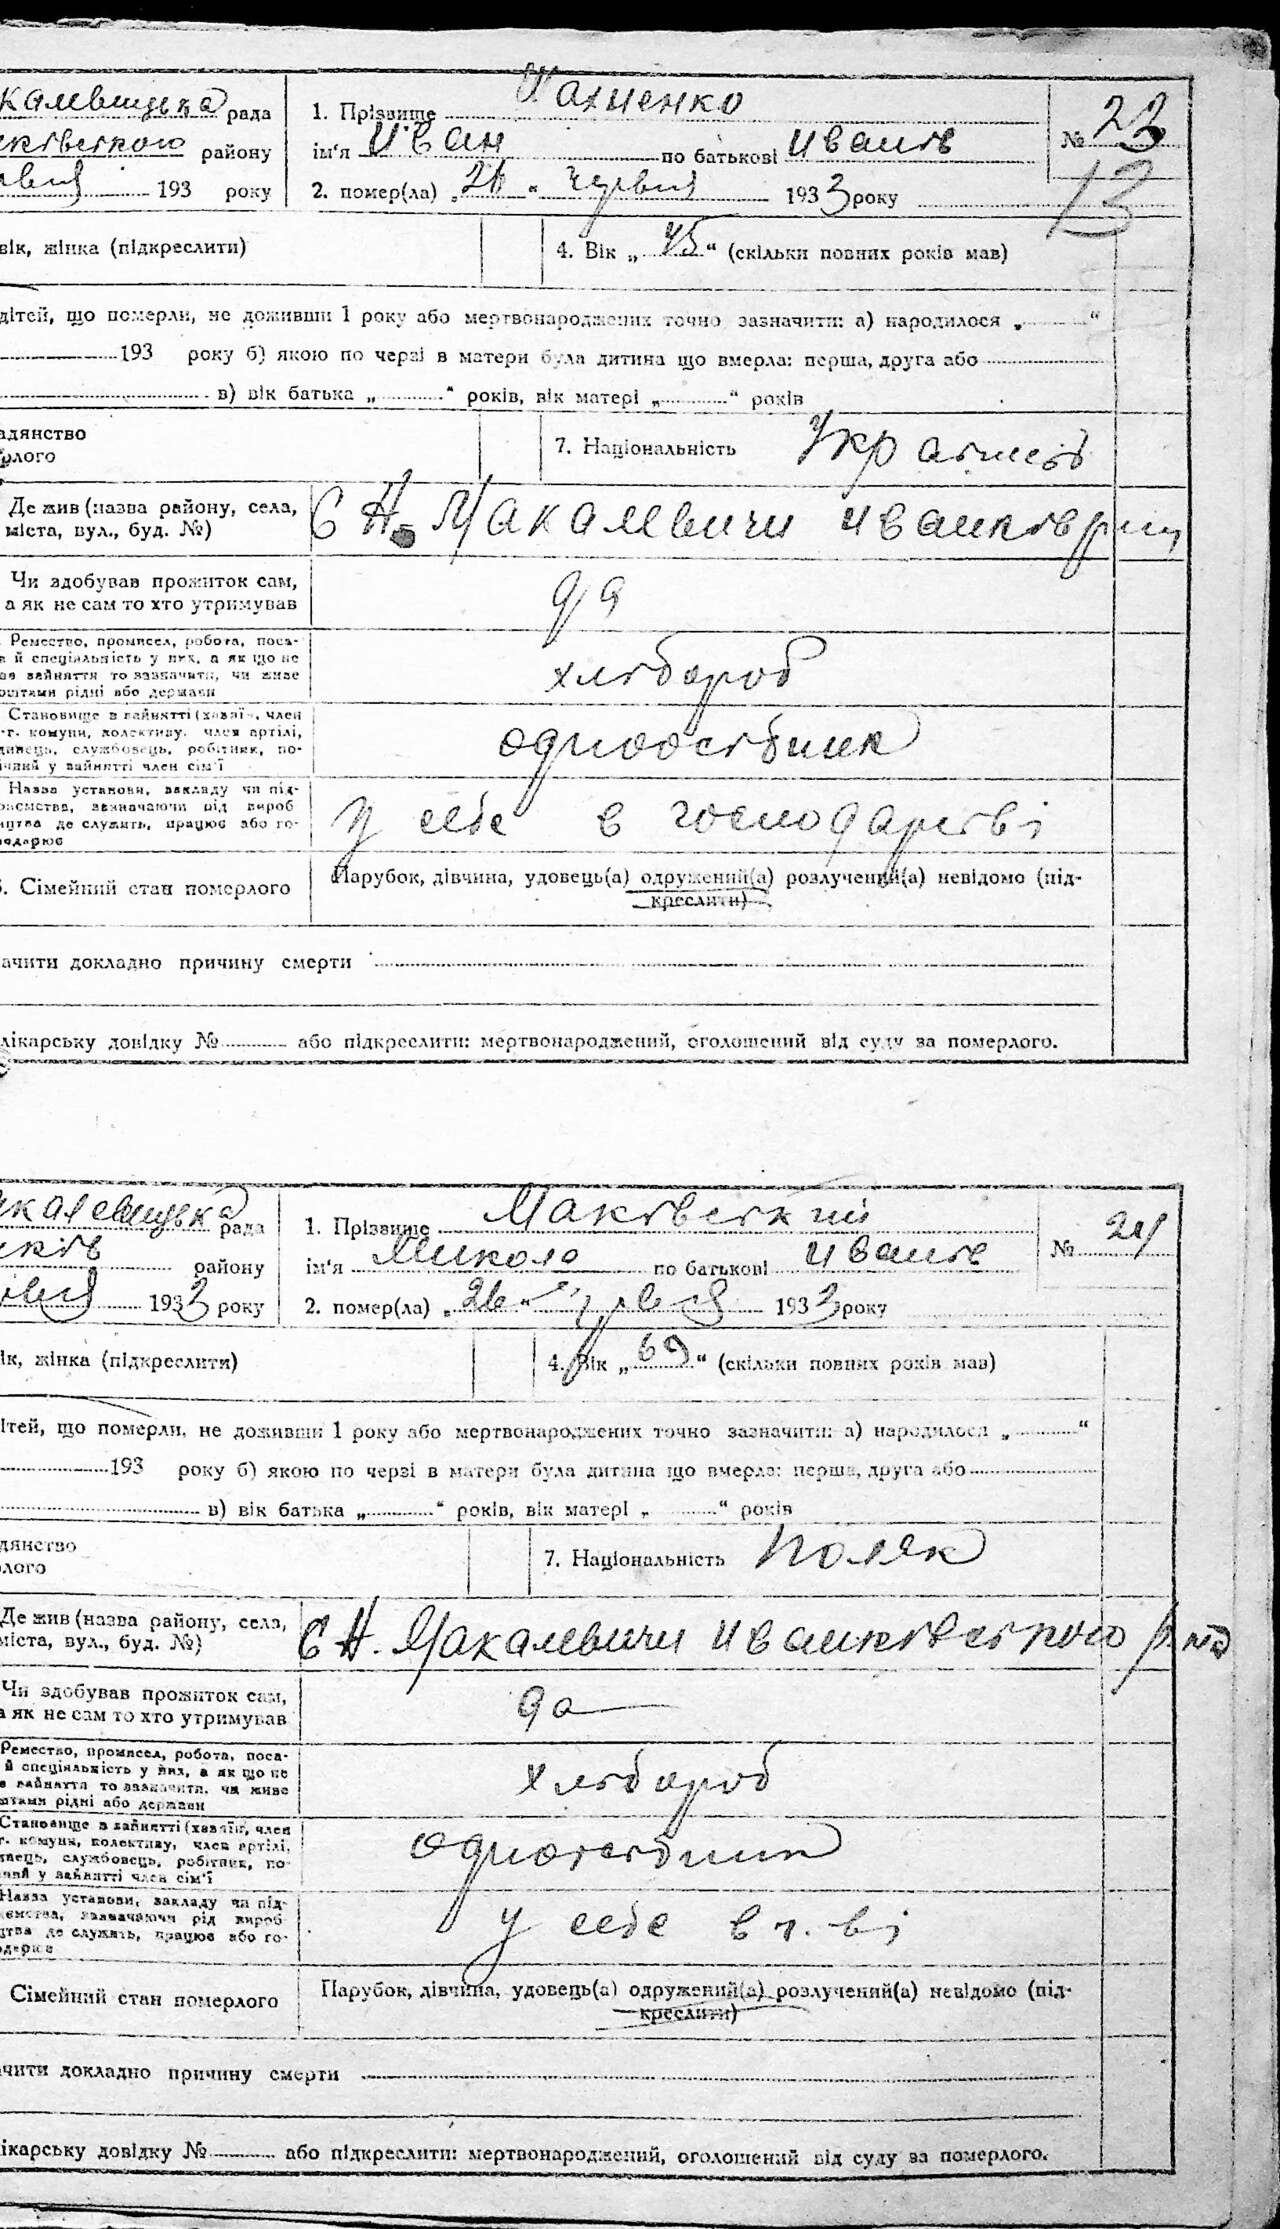 калевицька рада
1. Прізвище Пахненко
№ 23
району
ім'я Иван по батькові Иванів
13
193 року
2. помер(ла) „26“ червня 1933 року
вік, жінка (підкреслити)
4. Вік „75“ (скільки повних років мав)
дітей, що померли, не доживши 1 року або мертвонароджених точно зазначити: а) народилося „ “
193 року б) якою по черзі в матери була дитина що вмерла: перша, друга або
в) вік батька „ “ років, вік матері „ “ років
адянство
рлого
7. Національність Українець
Де жив (назва району, села,
міста, вул., буд. №)
с Н. Макалевичи Иванків
Чи здобував прожиток сам,
а як не сам то хто утримував
да
Ремество, промисел, робота, поса-
й спеціяльність у них, а як що не
зайняття то зазначити, чи живе
коштами рідні або держави
хлібороб
Становище в зайнятті (хазяїн, член
г. комуни, колективу, член артілі,
службовець, робітник, по-
у зайнятті член сім'ї
одноосібник
Назва установи, закладу чи під-
зазначаючи рід вироб
де служить, працює або го-
у себе в господарстві
6. Сімейний стан померлого
Парубок, дівчина, удовець(а) одружений(а) розлучений(а) невідомо (під-
креслити)
ачити докладно причину смерти
лікарську довідку № або підкреслити: мертвонароджений, оголошений від суду за померлого.
акалевицька рада
1. Прізвище Маківський
№ 24
нків району
ім'я Микола по батькові Иванів
1933 року
2. помер(ла) „26“ червня 1933 року
ік, жінка (підкреслити)
4. Вік „69“ (скільки повних років мав)
ітей, що померли, не доживши 1 року або мертвонароджених точно зазначити: а) народилося „ “
193 року б) якою по черзі в матери була дитина що вмерла: перша, друга або
в) вік батька „ “ років, вік матері „ “ років
дянство
лого
7. Національність Поляк
Де жив (назва району, села,
міста, вул., буд. №)
с Н. Макалевичи Иванківського р-на
Чи здобував прожиток сам,
а як не сам то хто утримував
да
Ремество, промисел, робота, поса-
й спеціяльність у них, а як що не
зайняття то зазначити, чи живе
коштами рідні або держави
хлібороб
Становище в зайнятті (хазяїн, член
г. комуни, колективу, член артілі,
службовець, робітник, по-
у зайнятті член сім'ї
одноосібник
Назва установи, закладу чи під-
зазначаючи рід вироб
де служить, працює або го-
у себе в г. ві
Сімейний стан померлого
Парубок, дівчина, удовець(а) одружений(а) розлучений(а) невідомо (під-
креслити)
ачити докладно причину смерти
ікарську довідку № або підкреслити: мертвонароджений, оголошений від суду за померлого.